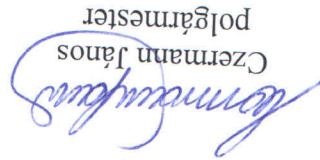 Czermann János
polgármester